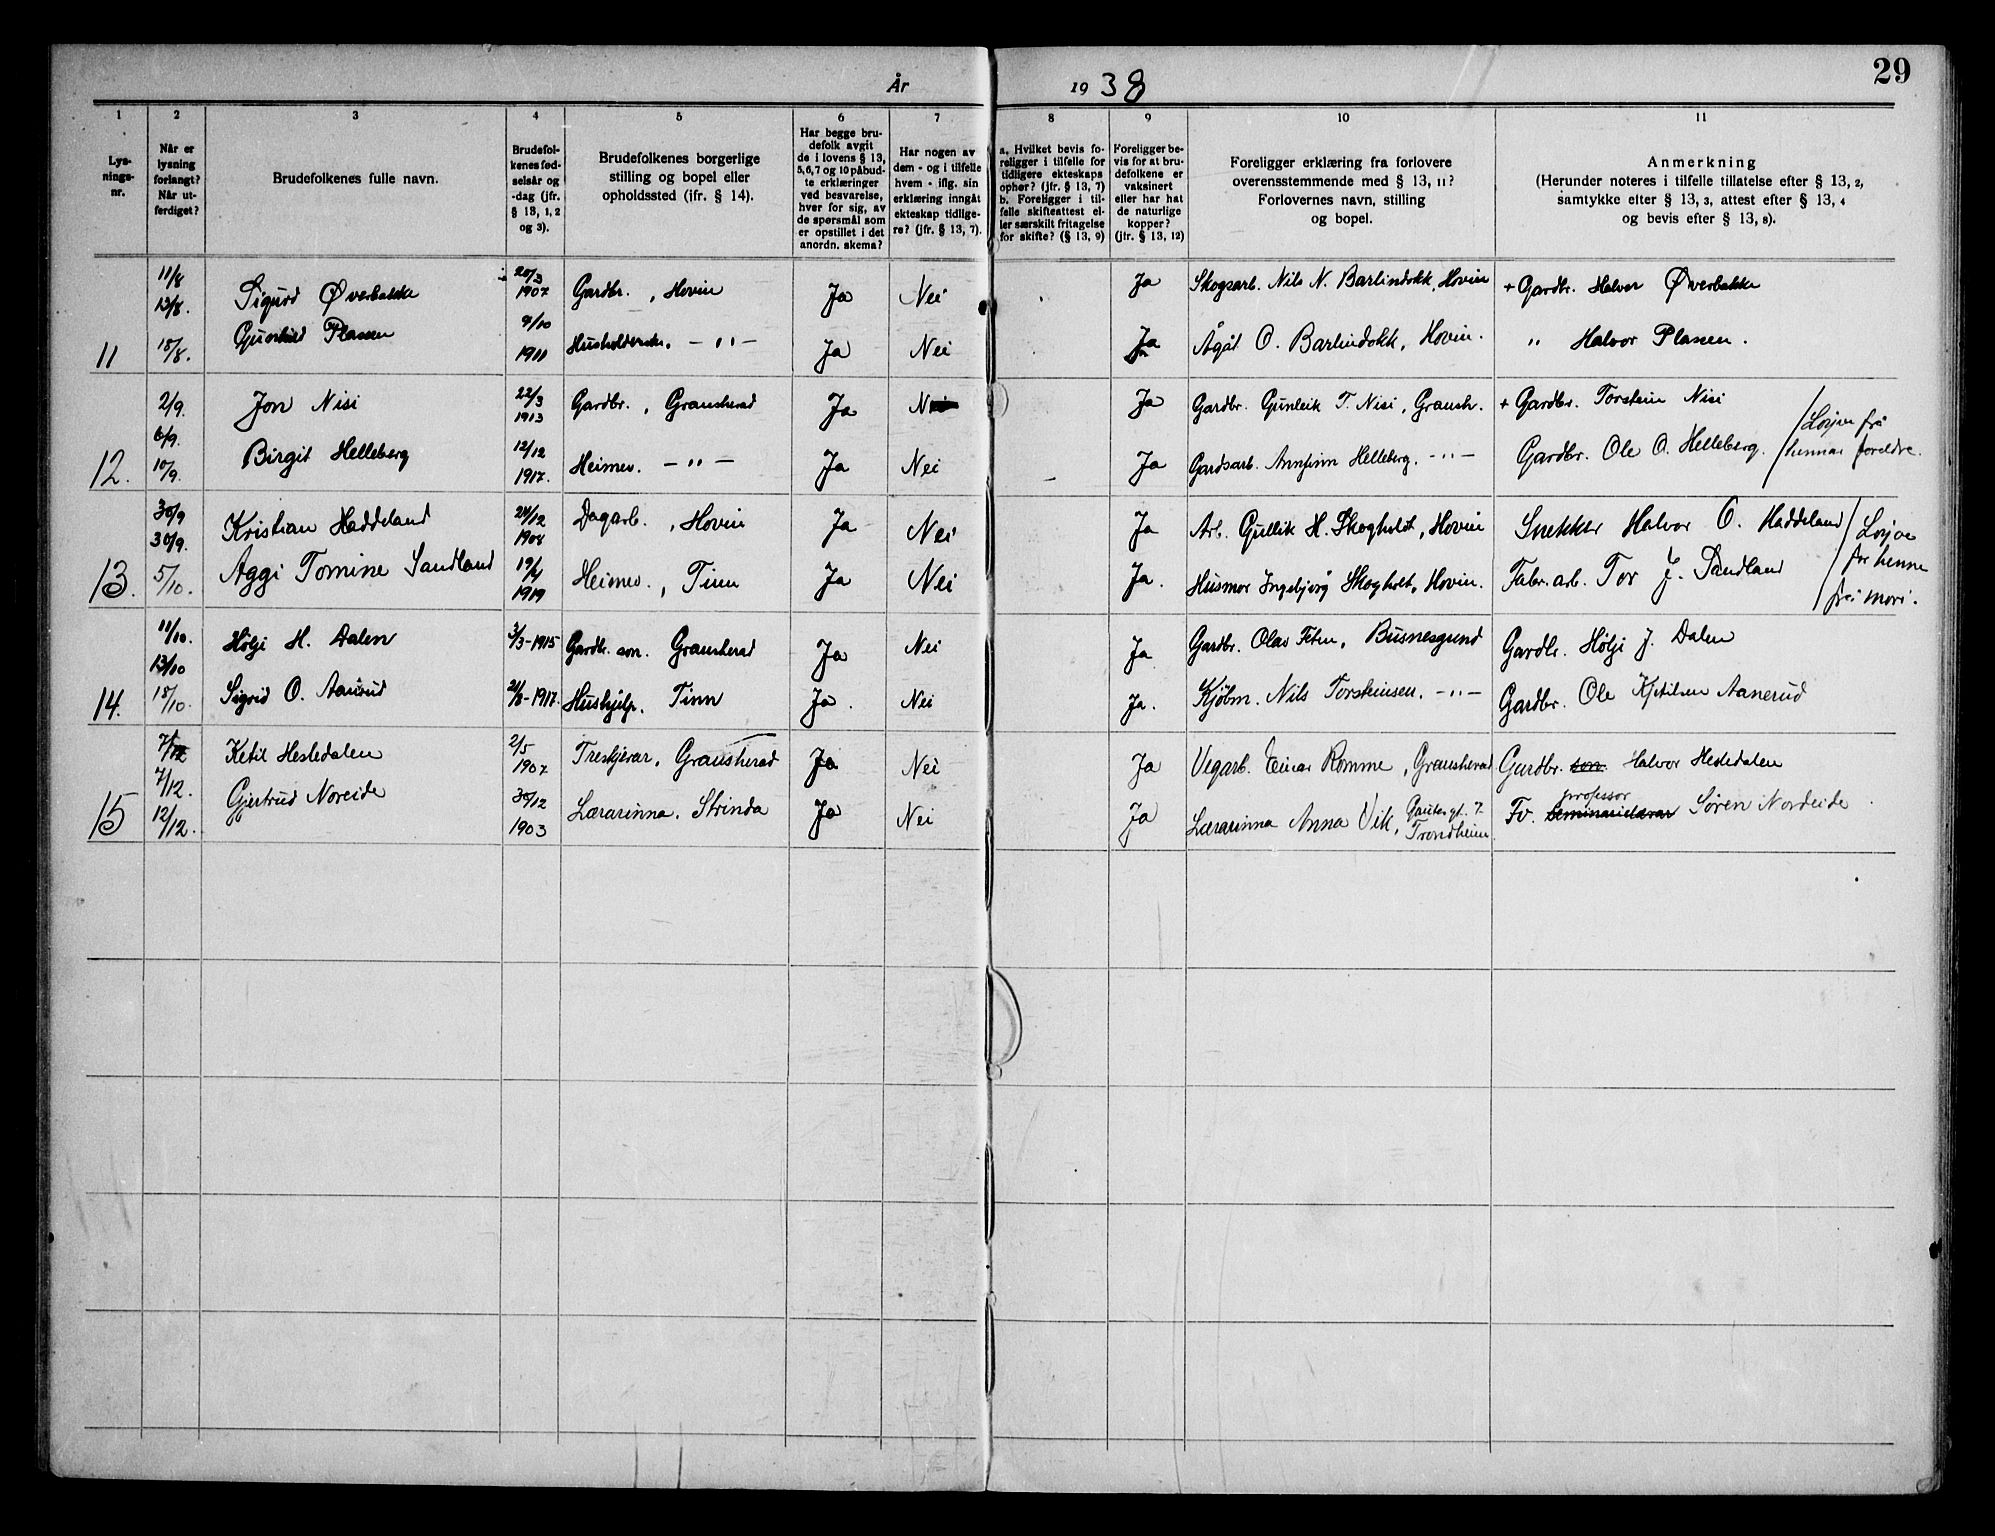 29
År 1938
1 2 3 4 5 6 7 8 9 10 11
Lys-
nings-
nr.
Når er
lysning
forlangt?
Når ut-
ferdiget?
Brudefolkenes fulle navn.
Brudefol-
kenes fød-
selsår og
-dag (jfr.
§ 13, 1, 2
og 3).
Brudefolkenes borgerlige
stilling og bopel eller
opholdssted (ifr. § 14).
Har begge bru-
defolk avgit
de i lovens § 13,
5, 6, 7 og 10 påbud-
te erklæringer
ved besvarelse,
hver for sig, av
de spørsmål som
er opstillet i det
anordn. skema?
Har nogen av
dem - og i tilfelle
hvem - iflg. sin
erklæring inngåt
ekteskap tidlige-
re? (jfr. § 13, 7).
a. Hvilket bevis fo-
religger i tilfelle for
tidligere ekteskaps
ophør? (jfr. § 13, 7)
b. Foreligger i til-
felle skifteattest el-
ler særskilt fritagelse
for skifte? (§ 13, 9)
Foreligger be-
vis for at bru-
defolkene er
vaksinert
eller har hat
de naturlige
kopper?
(jfr. § 13, 12)
Foreligger erklæring fra forlovere
overensstemmende med § 13, 11?
Forlovernes navn, stilling
og bopel.
Anmerkning
(Herunder noteres i tilfelle tillatelse efter § 13, 2,
samtykke efter § 13, 3, attest efter § 13, 4
og bevis efter § 13, 8).
11/8 13/8. Sigurd Øverbakke 20/3 1907 Gardbr., Hovin Ja Nei Ja Skogsarb. Nils N. Barlindokk, Hovin + Gardbr. Halvor Øverbakke
11 18/8. Gunhild Plassen 9/10 1911 -"- Ja Nei Ja Ågåt O. Barlindokk, Hovin. " Halvor Plassen.
2/9. Jon Nisi 22/3 1913 Gardbr., Gransherad Ja Nei Ja Gardbr. Gunleik T. Nisi, Gransh. + Gardbr. Torstein Nisi
12. 6/9. 10/9. Birgit Helleberg 12/12 1917. Heimev. -"- Ja Nei Ja Gardsarb. Annfinn Helleberg. -"- Gardbr. Ole O. Helleberg. / Løyve frå hennar foreldre.
30/9 30/9. Kristian Haddeland 24/12 1908 Dagarb., Hovin Ja Nei Ja Arb. Gullik H. Skogholt, Hovin Snekker Halvor O. Haddeland / Løyve
13. 5/10. Aggi Tomine Sandland 19/4 1919 Heimev., Tinn Ja Nei Ja. Husmor Ingebjørg Skogholt, Hovin. Fabr.arb. Tor J. Sandland for henne frå mori.
11/10. 13/10 Hølje H. Dalen 3/3-1915 Gardbr. son. Gransherad Ja Nei Ja Gardbr. Olav Feten, Busnesgrend Gardbr. Hølje J. Dalen
14. 18/10. Sigrid O. Aanrud 21/8-1917. Hushjelp. Tinn Ja. Nei Ja. Kjøbm. Nils Torsteinsen. -"- Gardbr. Ole Kjetilsen Aanerud
7/12 7/12. Ketil Hesledalen 2/5 1907 Treskjerar, Gransherad Ja Nei Ja Vegarb. Einar Romme, Gransherad Gardbr. son. Halvor Hesledalen
15 12/12. Gjertrud Noreide 30/12 1903 Lærarinna. Strinda Ja Nei Ja Lærarinna Anna Vik, Trondheim. Fv. professor Seminarielærar Søren Nordeide